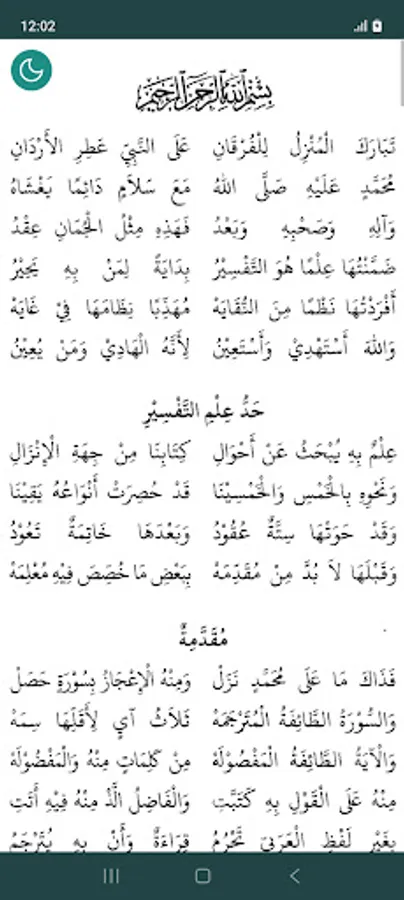 12:02
بِسْمِ اللهِ الرَّحْمٰنِ الرَّحِيْمِ
تَبَارَكَ الْمُنْزِلُ لِلْفُرْقَانِ عَلَى النَّبِيِّ عَطِرِ الأَرْدَانِ
مُحَمَّدٍ عَلَيْهِ صَلَّى اللهُ مَعَ سَلاَمٍ دَائِمًا يَغْشَاهُ
وَآلِهِ وَصَحْبِهِ وَبَعْدُ فَهَذِهِ مِثْلُ الْجُمَانِ عِقْدُ
ضَمَّنْتُهَا عِلْمًا هُوَ التَّفْسِيْرُ بِدَايَةً لِمَنْ بِهِ يَحِيْرُ
أَفْرَدْتُهَا نَظْمًا مِنَ النُّقَايَهْ مُهَذِّبًا نِظَامَهَا فِيْ غَايَهْ
وَاللهَ أَسْتَهْدِيْ وَأَسْتَعِيْنُ لِأَنَّهُ الْهَادِيْ وَمَنْ يُعِيْنُ
حَدُّ عِلْمِ التَّفْسِيْرِ
عِلْمٌ بِهِ يُبْحَثُ عَنْ أَحْوَالِ كِتَابِنَا مِنْ جِهَةِ الْإِنْزَالِ
وَنَحْوِهِ بِالْخَمْسِ وَالْخَمْسِيْنَا قَدْ حُصِرَتْ أَنْوَاعُهُ يَقِيْنَا
وَقَدْ حَوَتْهَا سِتَّةٌ عُقُوْدُ وَبَعْدَهَا خَاتِمَةٌ تَعُوْدُ
وَقَبْلَهَا لاَ بُدَّ مِنْ مُقَدِّمَهْ بِبَعْضِ مَا خُصِّصَ فِيْهِ مُعْلِمَهْ
مُقَدِّمَةٌ
فَذَاكَ مَا عَلَى مُحَمَّدٍ نَزَلْ وَمِنْهُ الْإِعْجَازُ بِسُوْرَةٍ حَصَلْ
وَالسُّوْرَةُ الطَّائِفَةُ الْمُتَرْجَمَهْ ثَلاَثُ آيٍ لِأَقَلِّهَا سِمَهْ
وَالْآيَةُ الطَّائِفَةُ الْمَفْصُوْلَهْ مِنْ كَلِمَاتٍ مِنْهُ وَالْمَفْضُوْلَهْ
مِنْهُ عَلَى الْقَوْلِ بِهِ كَتَبَّتِ وَالْفَاضِلُ الَّذْ مِنْهُ فِيْهِ أَتَتِ
بِغَيْرِ لَفْظِ الْعَرَبِيِّ تَحْرُمُ قِرَاءَةٌ وَأَنْ بِهِ يُتَرْجَمُ